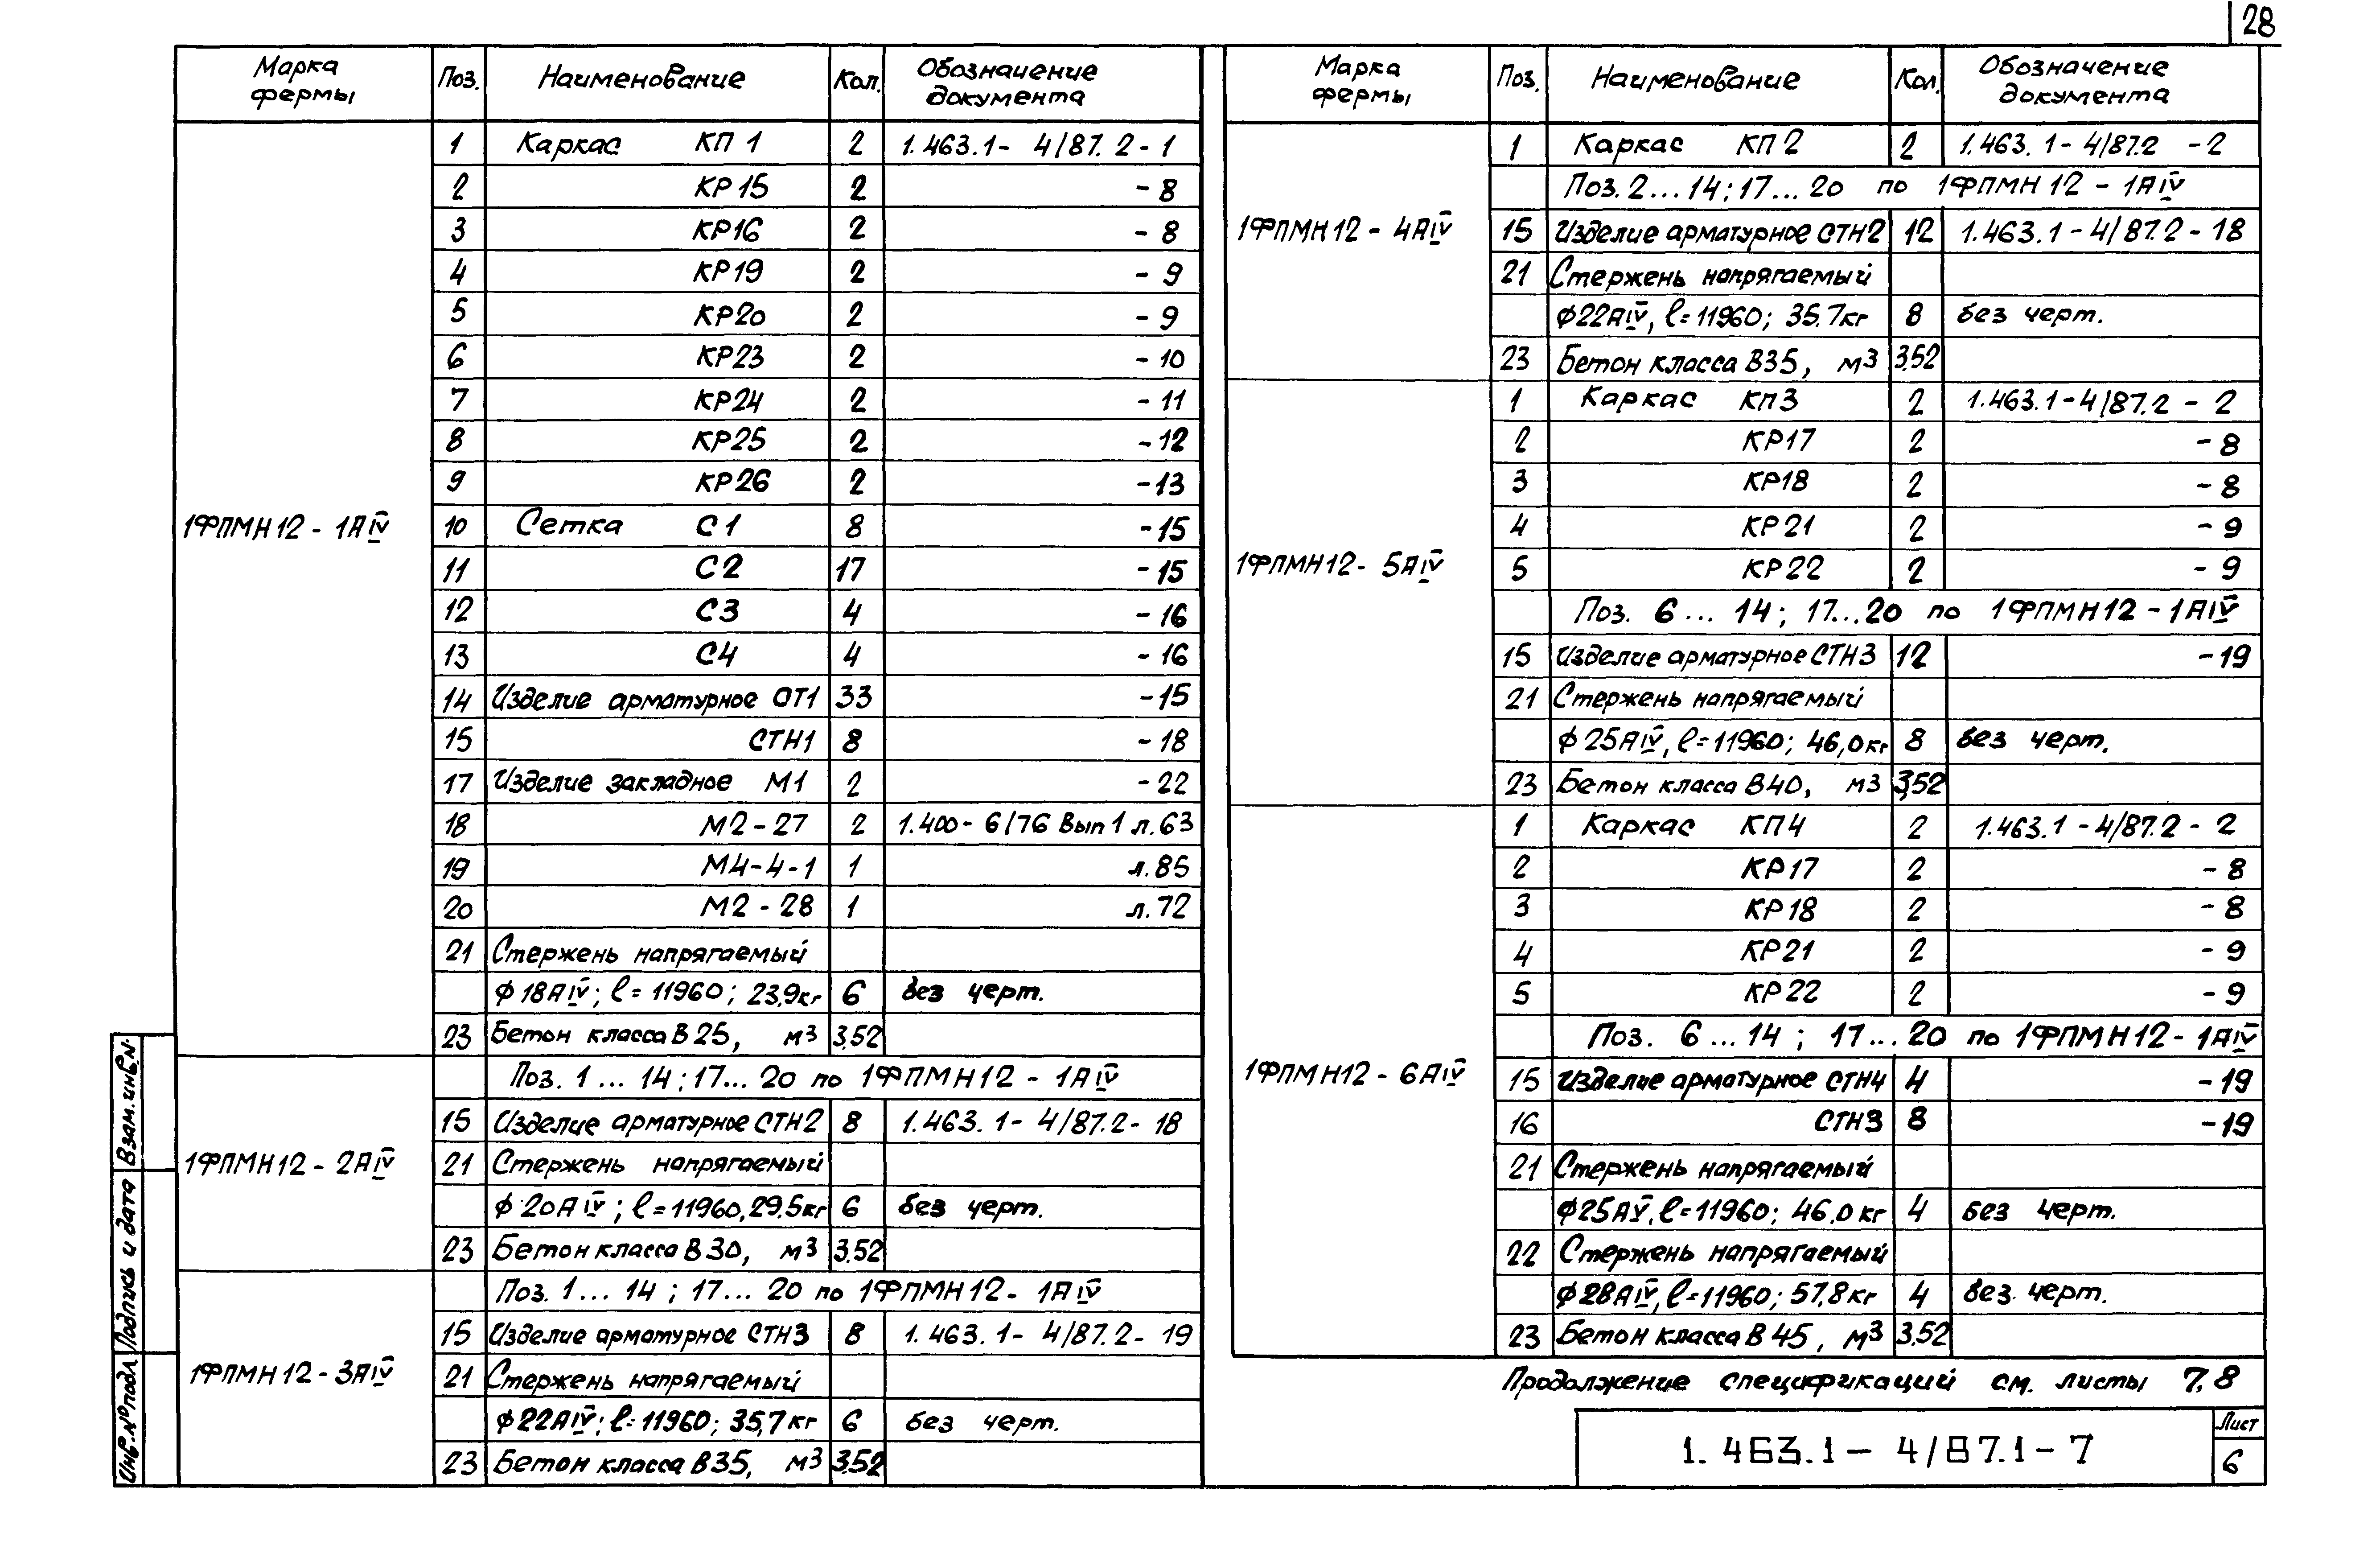 28
Марка фермы Поз. Наименование Кол. Обозначение документа
1ФПМН12 - 1АIV
1 Каркас КП 1 2 1.463.1- 4/87.2-1
2 КР15 2 -8
3 КР16 2 -8
4 КР19 2 -9
5 КР20 2 -9
6 КР23 2 -10
7 КР24 2 -11
8 КР25 2 -12
9 КР26 2 -13
10 Сетка С1 8 -15
11 С2 17 -15
12 С3 4 -16
13 С4 4 -16
14 Изделие арматурное ОТ1 33 -15
15 СТН1 8 -18
17 Изделие закладное М1 2 -22
18 М2-27 2 1.400-6/76 Вып1 л.63
19 М4-4-1 1 л.85
20 М2-28 1 л.72
21 Стержень напрягаемый
ф18АIV; ℓ=11960; 23,9кг 6 без черт.
23 Бетон класса В25, м3 3,52
1ФПМН12 - 2АIV
Поз. 1...14; 17...20 по 1ФПМН12 - 1АIV
15 Изделие арматурное СТН2 8 1.463.1- 4/87.2- 18
21 Стержень напрягаемый
ф20АIV; ℓ=11960, 29.5кг 6 без черт.
23 Бетон класса В30, м3 3.52
1ФПМН12-3АIV
Поз. 1...14; 17...20 по 1ФПМН12- 1АIV
15 Изделие арматурное СТН3 8 1.463.1- 4/87.2- 19
21 Стержень напрягаемый
ф22АIV; ℓ=11960; 35,7кг 6 без черт.
23 Бетон класса В35, м3 3.52
Марка фермы Поз. Наименование Кол. Обозначение документа
1ФПМН12 - 4АIV
1 Каркас КП2 2 1.463.1-4/87.2 -2
Поз. 2...14; 17...20 по 1ФПМН12 - 1АIV
15 Изделие арматурное СТН2 12 1.463.1-4/87.2-18
21 Стержень напрягаемый
ф22АIV, ℓ=11960; 35.7кг 8 без черт.
23 Бетон класса В35, м3 3,52
1ФПМН12- 5АIV
1 Каркас КП3 2 1.463.1-4/87.2 - 2
2 КР17 2 -8
3 КР18 2 -8
4 КР21 2 -9
5 КР22 2 -9
Поз. 6...14; 17...20 по 1ФПМН12-1АIV
15 Изделие арматурное СТН3 12 -19
21 Стержень напрягаемый
ф25АIV, ℓ=11960; 46,0кг 8 без черт.
23 Бетон класса В40, м3 3,52
1ФПМН12 - 6АIV
1 Каркас КП4 2 1.463.1-4/87.2- 2
2 КР17 2 -8
3 КР18 2 -8
4 КР21 2 -9
5 КР22 2 -9
Поз. 6...14; 17...20 по 1ФПМН12-1АIV
15 Изделие арматурное СТН4 4 -19
16 СТН3 8 -19
21 Стержень напрягаемый
ф25АV, ℓ=11960; 46,0кг 4 без черт.
22 Стержень напрягаемый
ф28АIV, ℓ=11960; 57,8кг 4 без. черт.
23 Бетон класса В45, м3 3.52
Продолжение спецификаций см. листы 7,8
1.463.1- 4/87.1-7
Лист
6
Взам.инв.N
Подпись и дата
Инв.№подл.